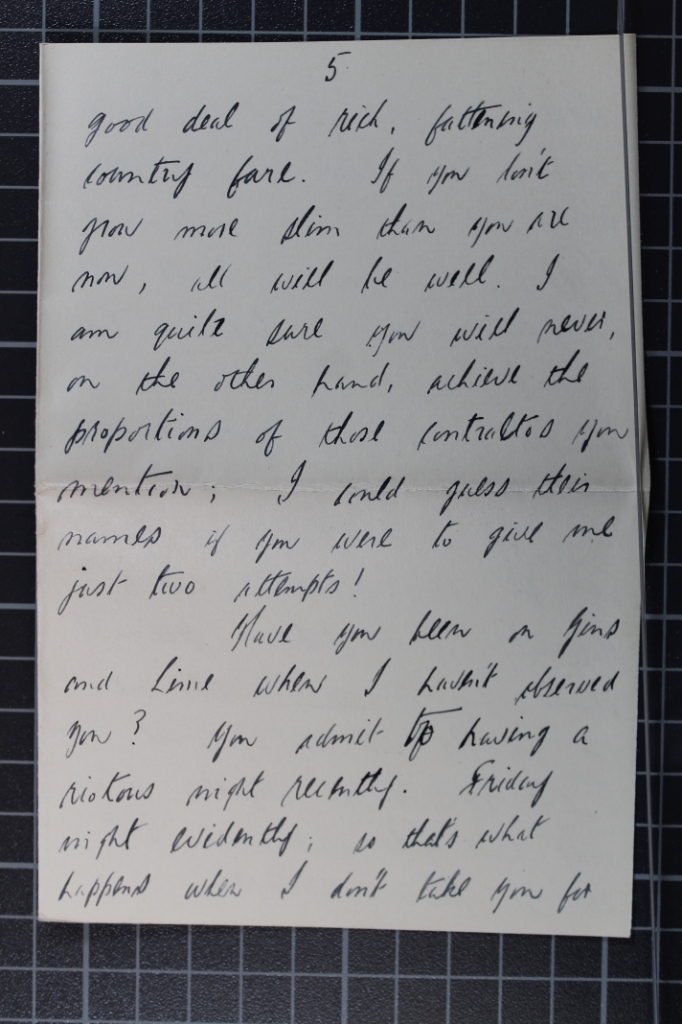 5
good deal of rich, fattening
country fare. If you don't
grow more slim than you are
now, all will be well. I
am quite sure you will never,
on the other hand, achieve the
proportions of those contraltos you
mention; I could guess their
names if you were to give me
just two attempts!
Have you been on Gins
and Lime when I haven't observed
you? You admit to having a
riotous night recently. Friday
night evidently; so that's what
happens when I don't take you for